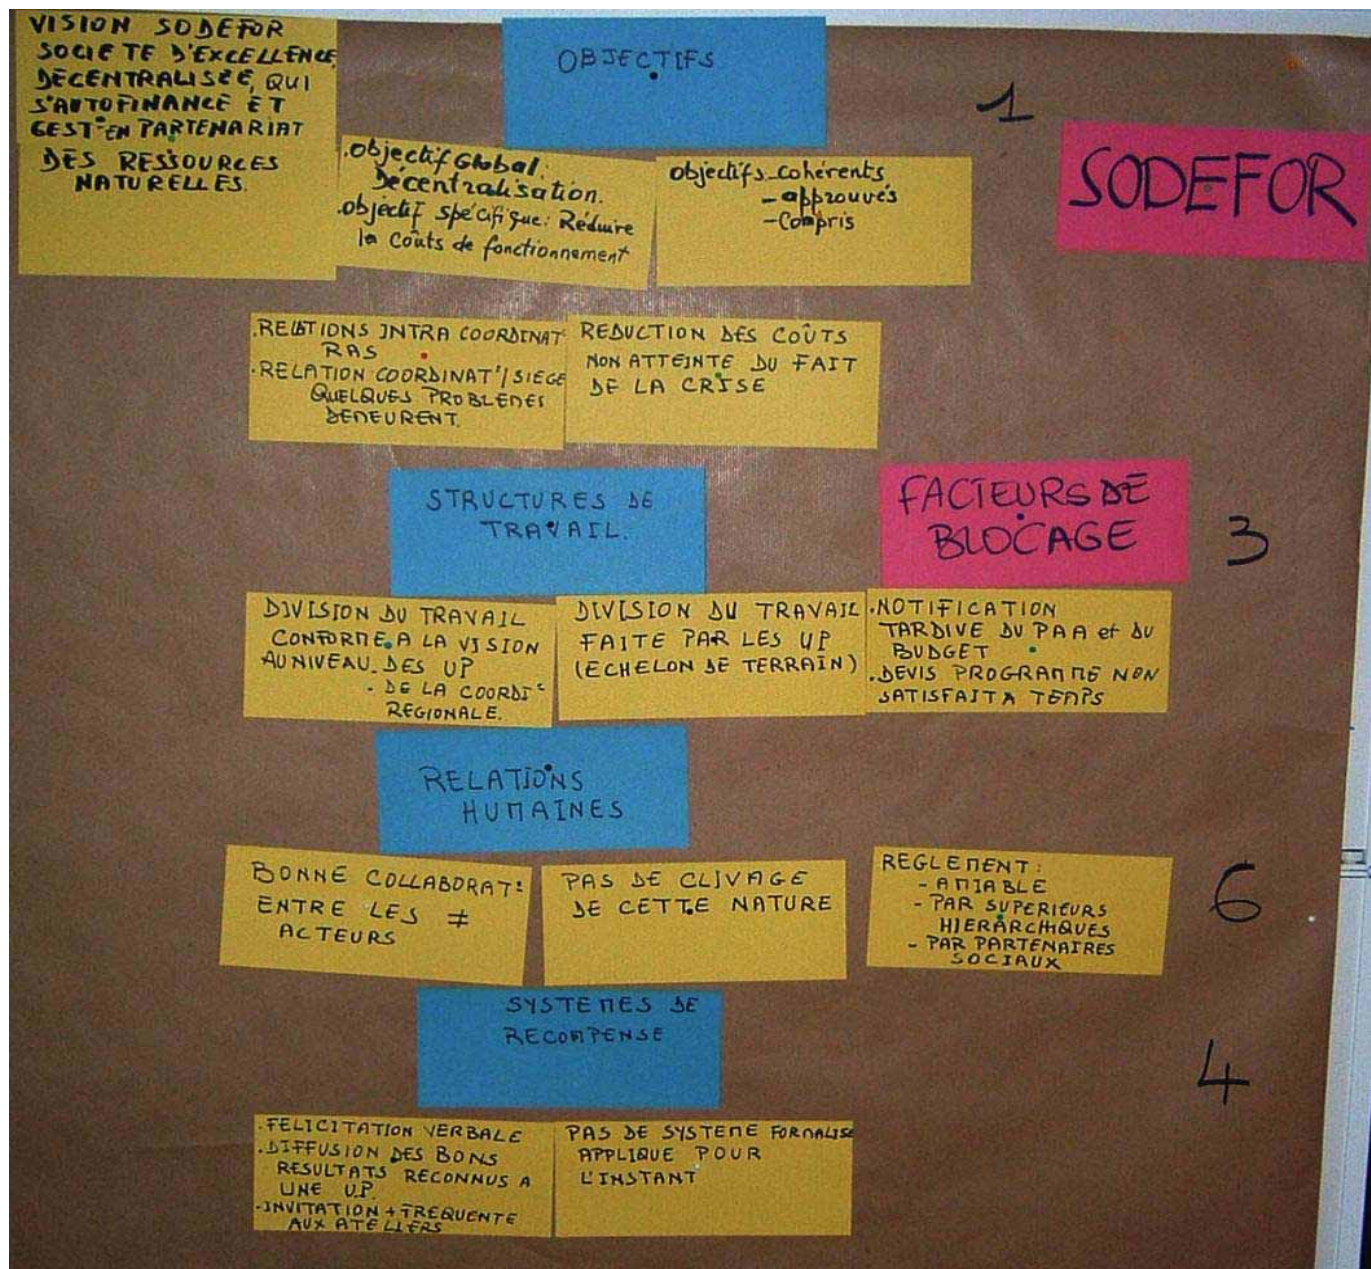 VISION SODEFOR
SOCIETE D'EXCELLENCE,
DECENTRALISEE, QUI
S'AUTOFINANCE ET
GEST° EN PARTENARIAT
DES RESSOURCES
NATURELLES.
OBJECTIFS
1
SODEFOR
.objectif Global:
Décentralisation.
.objectif spécifique: Réduire
la Coûts de fonctionnement
objectifs cohérents
- approuvés
- Compris
.RELATIONS INTRA COORDINAT°
RAS
.RELATION COORDINAT°/SIEGE
QUELQUES PROBLEMES
DEMEURENT.
REDUCTION DES COÛTS
NON ATTEINTE DU FAIT
DE LA CRISE
STRUCTURES DE
TRAVAIL.
FACTEURS DE
BLOCAGE
3
DIVISION DU TRAVAIL
CONFORME A LA VISION
AU NIVEAU. DES UP
. DE LA COORDI°
REGIONALE.
DIVISION DU TRAVAIL
FAITE PAR LES UP
(ECHELON DE TERRAIN)
.NOTIFICATION
TARDIVE DU PAA et DU
BUDGET
.DEVIS PROGRAMME NON
SATISFAIT A TEMPS
RELATIONS
HUMAINES
BONNE COLLABORAT°
ENTRE LES ≠
ACTEURS
PAS DE CLIVAGE
DE CETTE NATURE
REGLEMENT:
- AMIABLE
- PAR SUPERIEURS
HIERARCHIQUES
- PAR PARTENAIRES
SOCIAUX
6
SYSTEMES DE
RECOMPENSE
4
.FELICITATION VERBALE
.DIFFUSION DES BONS
RESULTATS RECONNUS A
UNE U.P.
.INVITATION + FREQUENTE
AUX ATELIERS
PAS DE SYSTEME FORMALISE
APPLIQUE POUR
L'INSTANT